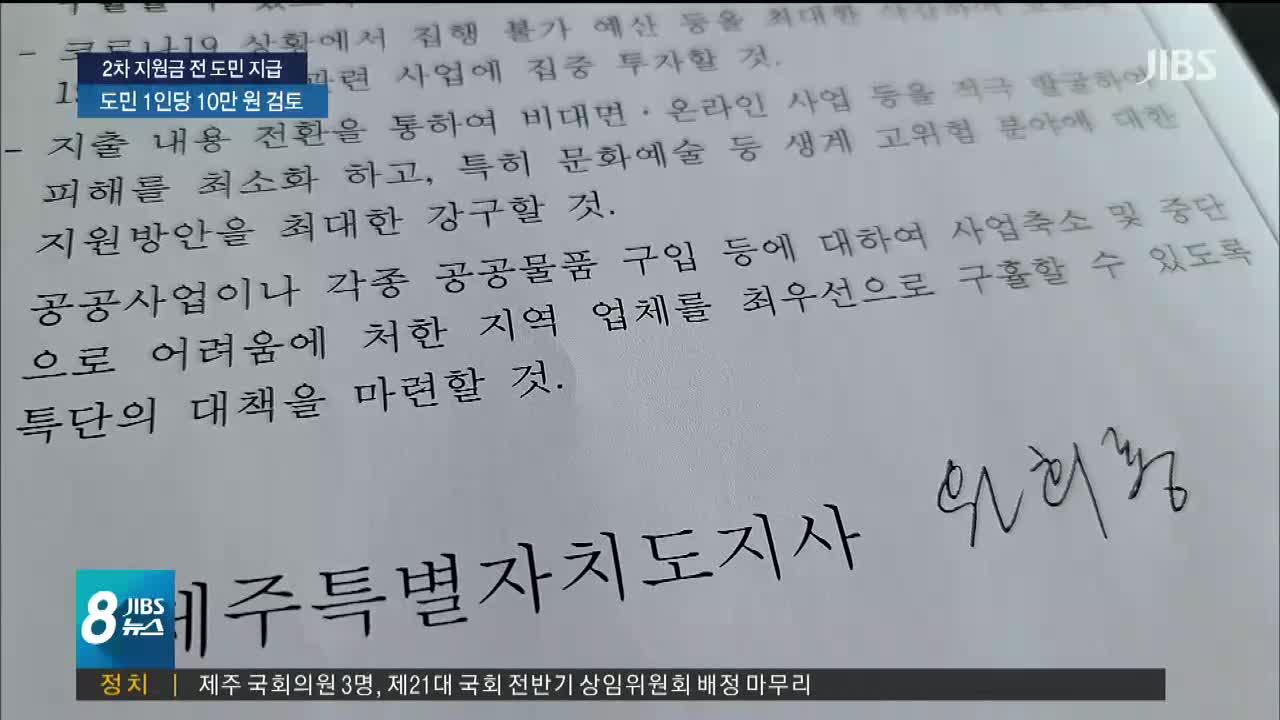 - 코로나19 상황에서 집행 불가 예산 등을 최대한
JIBS
2차 지원금 전 도민 지급
도민 1인당 10만 원 검토
사업에 집중 투자할 것.
- 지출 내용 전환을 통하여 비대면·온라인 사업 등을 적극 발굴하여
피해를 최소화 하고, 특히 문화예술 등 생계 고위험 분야에 대한
지원방안을 최대한 강구할 것.
공공사업이나 각종 공공물품 구입 등에 대하여 사업축소 및 중단
으로 어려움에 처한 지역 업체를 최우선으로 구휼할 수 있도록
특단의 대책을 마련할 것.
제주특별자치도지사 원희룡
8 JIBS 뉴스
정치 | 제주 국회의원 3명, 제21대 국회 전반기 상임위원회 배정 마무리